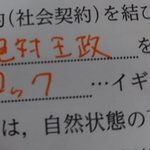 約(社会契約)を結び
絶対王政を
ロック…イギ
は，自然状態の